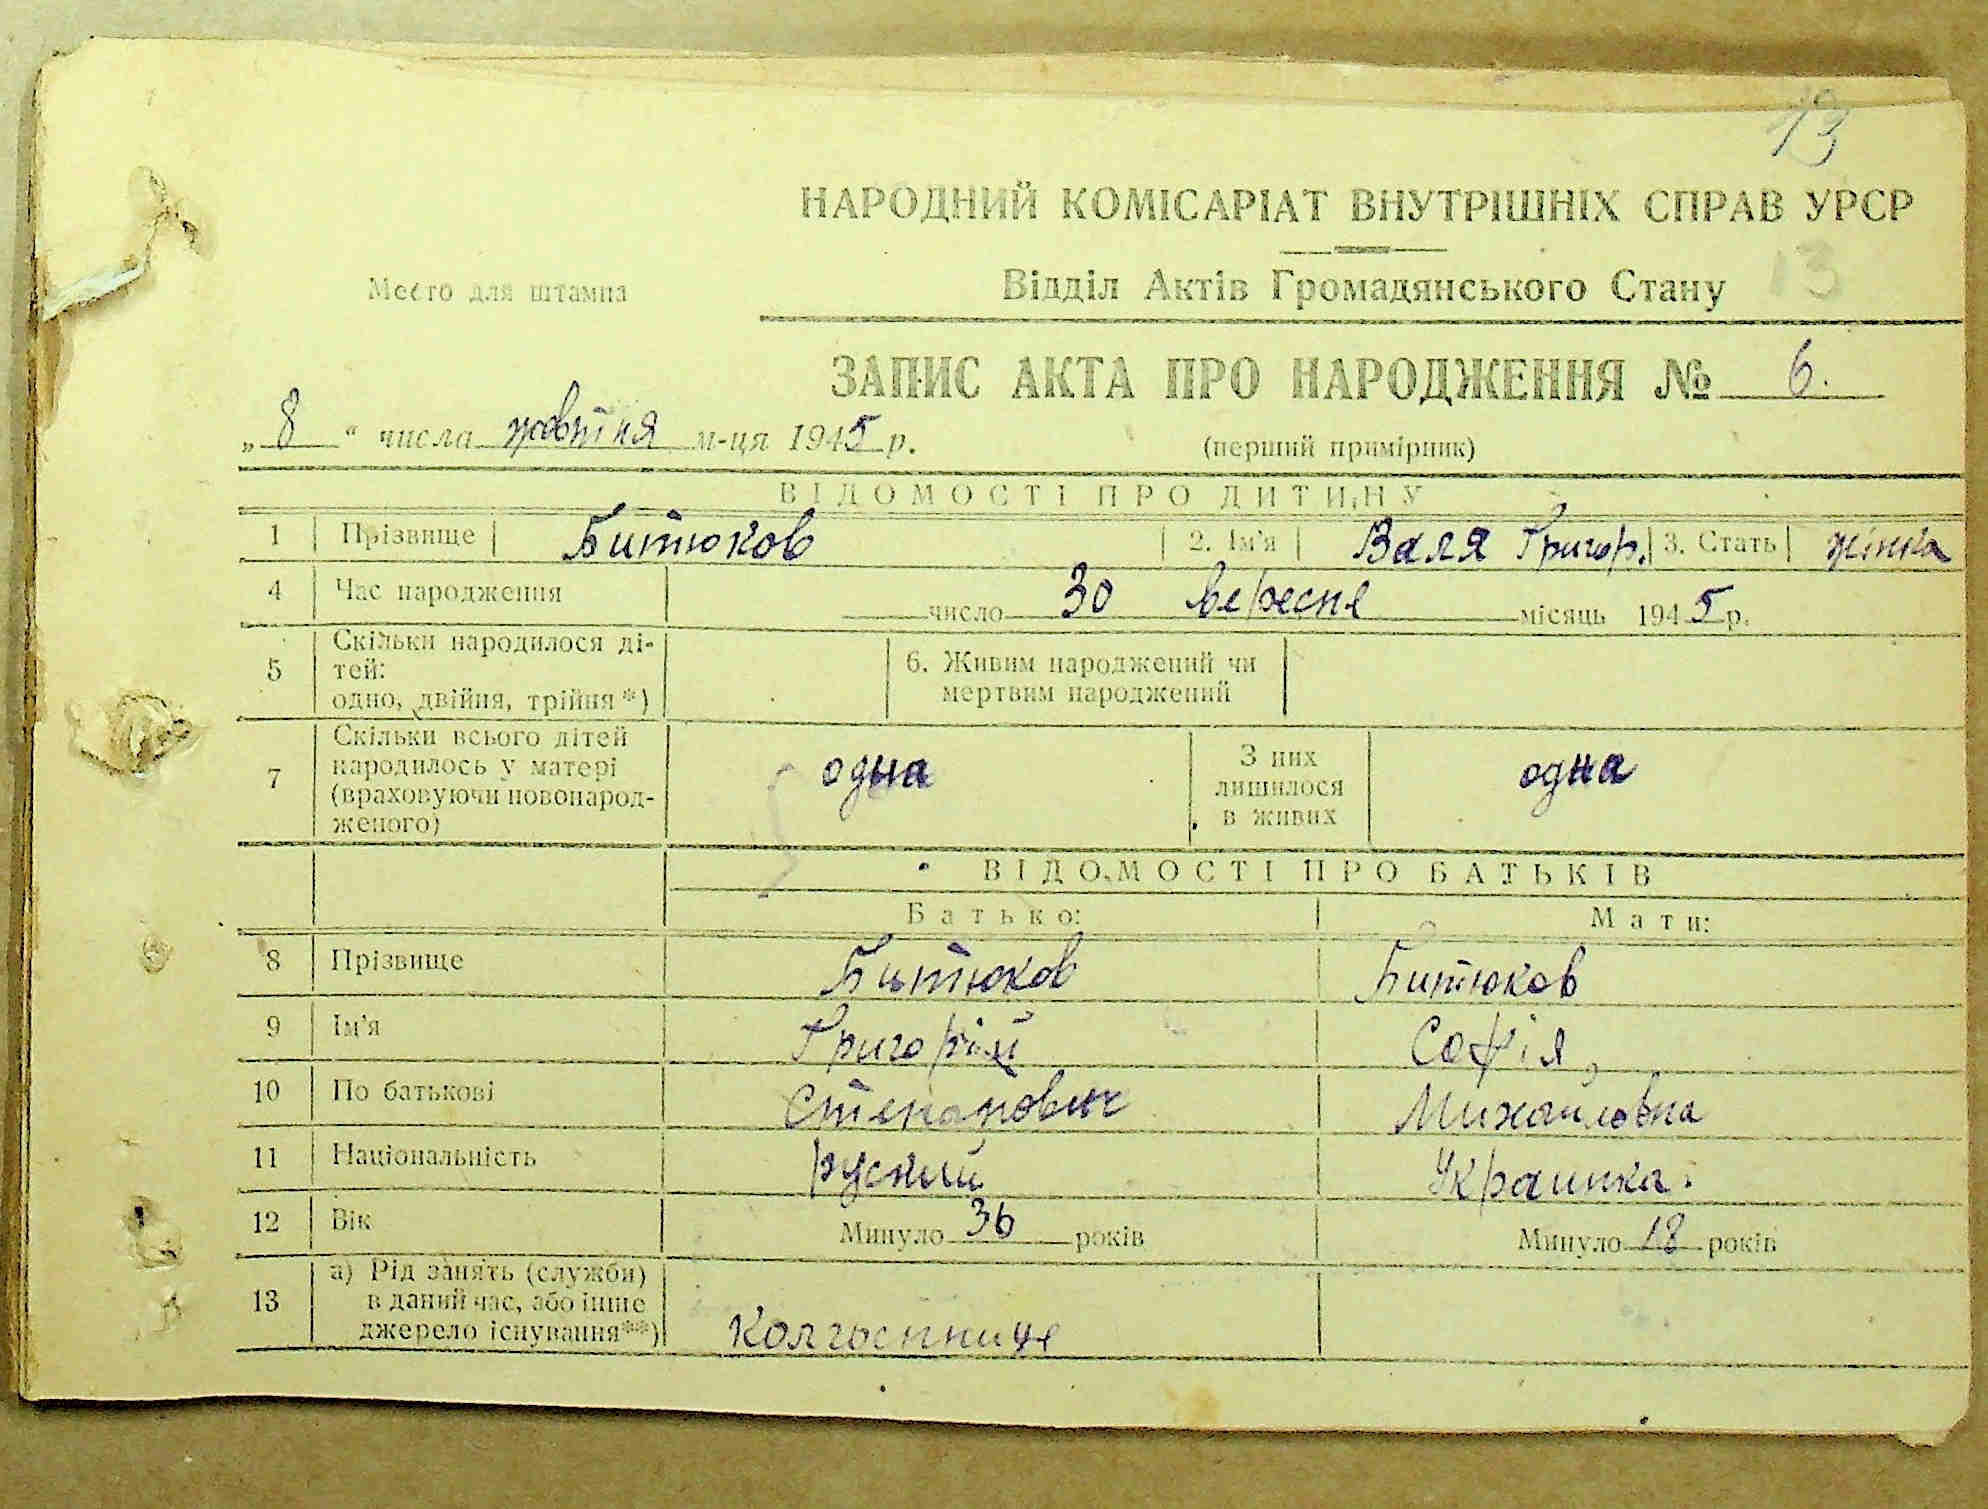 13
НАРОДНИЙ КОМІСАРІАТ ВНУТРІШНІХ СПРАВ УРСР
Место для штампа
Відділ Актів Громадянського Стану 13
ЗАПИС АКТА ПРО НАРОДЖЕННЯ № 6.
„ 8 “ числа жовтня м-ця 1945 р.
(перший примірник)
ВІДОМОСТІ ПРО ДИТИНУ
1 Прізвище Битюков 2. Ім'я Валя Григор. 3. Стать жінка
4 Час народження число 30 вересня місяць 1945 р.
5 Скільки народилося ді-
тей:
одно, двійня, трійня *)
6. Живим народжений чи
мертвим народжений
7 Скільки всього дітей
народилось у матері
(враховуючи новонарод-
женого)
одна
З них
лишилося
в живих
одна
ВІДОМОСТІ ПРО БАТЬКІВ
Батько: Мати:
8 Прізвище Битюков Битюков
9 Ім'я Григорій Софія
10 По батькові Степанович Михайловна
11 Національність руский Украинка.
12 Вік Минуло 36 років Минуло 18 років
13 а) Рід занять (служби)
в даний час, або інше
джерело існування**)
Колгоспнице